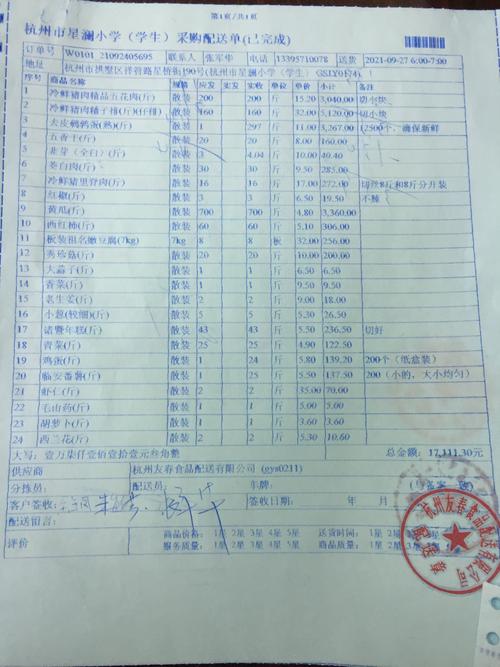 第1页/共1页
杭州市星澜小学（学生）采购配送单(已完成)
订单号 W0101 21092405695 联系人 张军华 电话 13395710078 送货 2021-09-27 6:00-7:00
地址 杭州市拱墅区祥符路星桥街190号(杭州市星澜小学（学生）
序号 商品名称 规格 应发 实发 实收 单位 单价 小计 备注
1 冷鲜猪肉精品五花肉(斤) 散装 200 200 斤 15.20 3,040.00 切小块
2 冷鲜猪肉精子排(斤)(仔排) 散装 160 160 斤 32.00 5,120.00 切小块
3 去皮鹌鹑蛋(熟)(斤) 散装 1 297 斤 11.00 3,267.00 12500个，确保新鲜
4 五香干(斤) 散装 20 20 斤 8.00 160.00
5 韭芽（全白）(斤) 散装 3 4.04 斤 10.00 40.40
6 茭白肉(斤) 散装 30 30 斤 9.50 285.00
7 冷鲜猪里脊肉(斤) 散装 16 16 斤 17.00 272.00 切丝8斤和8斤分开装
8 红椒(斤) 散装 3 3 斤 6.50 19.50 不辣
9 黄瓜(斤) 散装 700 700 斤 4.80 3,360.00
10 西红柿(斤) 散装 60 60 斤 5.10 306.00
11 板装祖名嫩豆腐(7kg) 7kg 8 8 板 32.00 256.00
12 秀珍菇(斤) 散装 20 20 斤 10.00 200.00
13 大蒜子(斤) 散装 1 1 斤 6.50 6.50
14 香菜(斤) 散装 1 1 斤 9.50 9.50
15 老生姜(斤) 散装 2 2 斤 9.00 18.00
16 小葱(较细)(斤) 散装 5 5 斤 5.30 26.50
17 诸暨年糕(斤) 散装 43 43 斤 5.50 236.50 切好
18 青菜(斤) 散装 25 25 斤 4.90 122.50
19 鸡蛋(斤) 散装 1 24 斤 5.80 139.20 200个（纸盒装）
20 临安番薯(斤) 散装 1 25 斤 5.50 137.50 200（小的，大小均匀）
21 虾仁(斤) 散装 2 2 斤 35.00 70.00
22 毛山药(斤) 散装 1 1 斤 5.00 5.00
23 胡萝卜(斤) 散装 1 1 斤 3.60 3.60
24 西兰花(斤) 散装 2 2 斤 5.30 10.60
大写：壹万柒仟壹佰壹拾壹元叁角整 总金额：17,111.30元
供应商 杭州友春食品配送有限公司 (gys0211)
分拣员： 配送员： 车牌：
客户签收： 签收日期： 年 月
配送留言：
评价 商品价格： 1星 2星 3星 4星 5星 送货时间： 1星 2星 3星 4星 5星
服务质量： 1星 2星 3星 4星 5星 商品质量： 1星 2星 3星 4星 5星
杭州友春食品配送有限公司